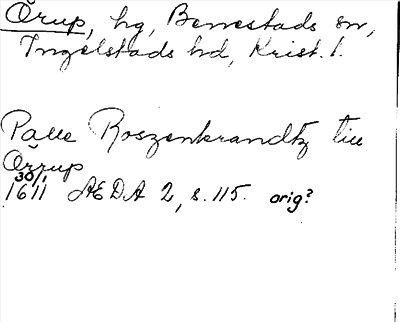 Örup, hg, Benestads sn,
Ingelstads hd, Krist. l.
Palle Roszenkrandtz till
Ørrup
30/1
1611 AEDA 2, s. 115. orig?